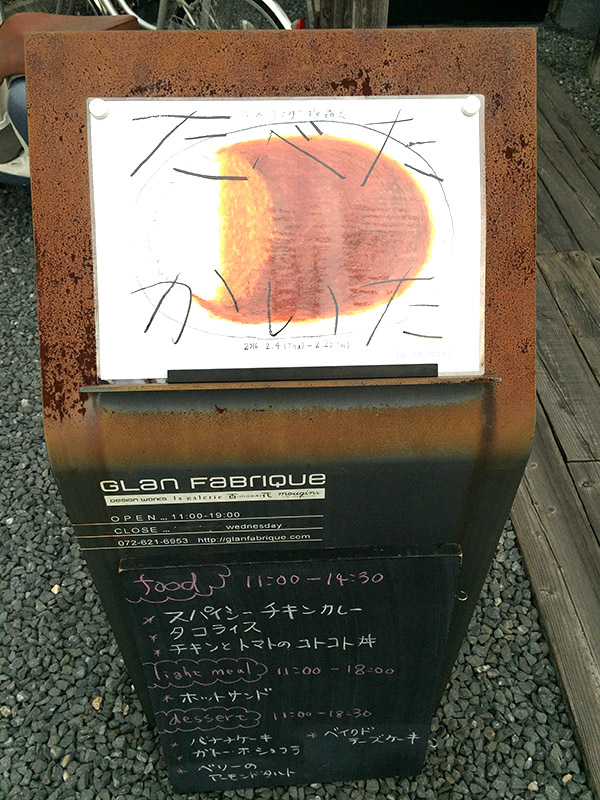 たべた
かいた
2016. 2. 4 (Thu) - 2.23
GLAN FABRIQUE
DESIGN WORKS la galerie mougins
OPEN ... 11:00-19:00
CLOSE ... wednesday
072-621-6953 http://glanfabrique.com
food 11:00-14:30
* スパイシーチキンカレー
* タコライス
* チキンとトマトのコトコト丼
light meal 11:00-18:00
* ホットサンド
dessert 11:00-18:30
* バナナケーキ
* ガトー・ホショコラ
* ベリーのアーモンドタルト
* ベイクドチーズケーキ